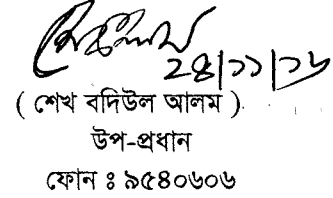 ২৪/১১/১৬
( শেখ বদিউল আলম )
উপ-প্রধান
ফোন ঃ ৯৫৪০৬০৬